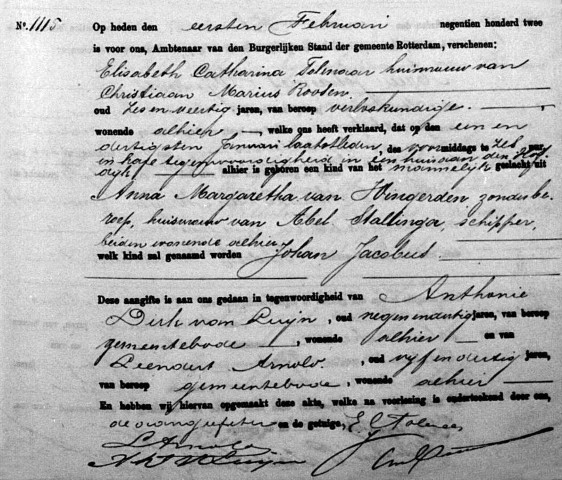 No. 1115 Op heden den eersten Februari negentien honderd twee
is voor ons, Ambtenaar van den Burgerlijken Stand der gemeente Rotterdam, verschenen:
Elisabeth Catharina Tolenaar huisvrouw van
Christiaan Marius Rooden.
oud zes en veertig jaren, van beroep verloskundige.
wonende alhier, welke ons heeft verklaard, dat op den een en
dertigsten Januari laatstleden, des voormiddags te zes uur,
in hare tegenwoordigheid in een huis aan den
dijk alhier is geboren een kind van het mannelijk geslacht uit
Anna Margaretha van Hingerden, zonder be-
roep, huisvrouw van Abel Stallinga, schipper,
beiden wonende alhier
welk kind zal genaamd worden Johan Jacobus.
Deze aangifte is aan ons gedaan in tegenwoordigheid van Anthonie
Dirk van Luijn, oud negen en dertig jaren, van beroep
gemeentebode, wonende alhier en van
Leendert Arnold, oud vijf en dertig jaren,
van beroep gemeentebode, wonende alhier
En hebben wij hiervan opgemaakt deze akte, welke na voorlezing is onderteekend door ons,
de aangeefster en de getuigen.
L. Arnold